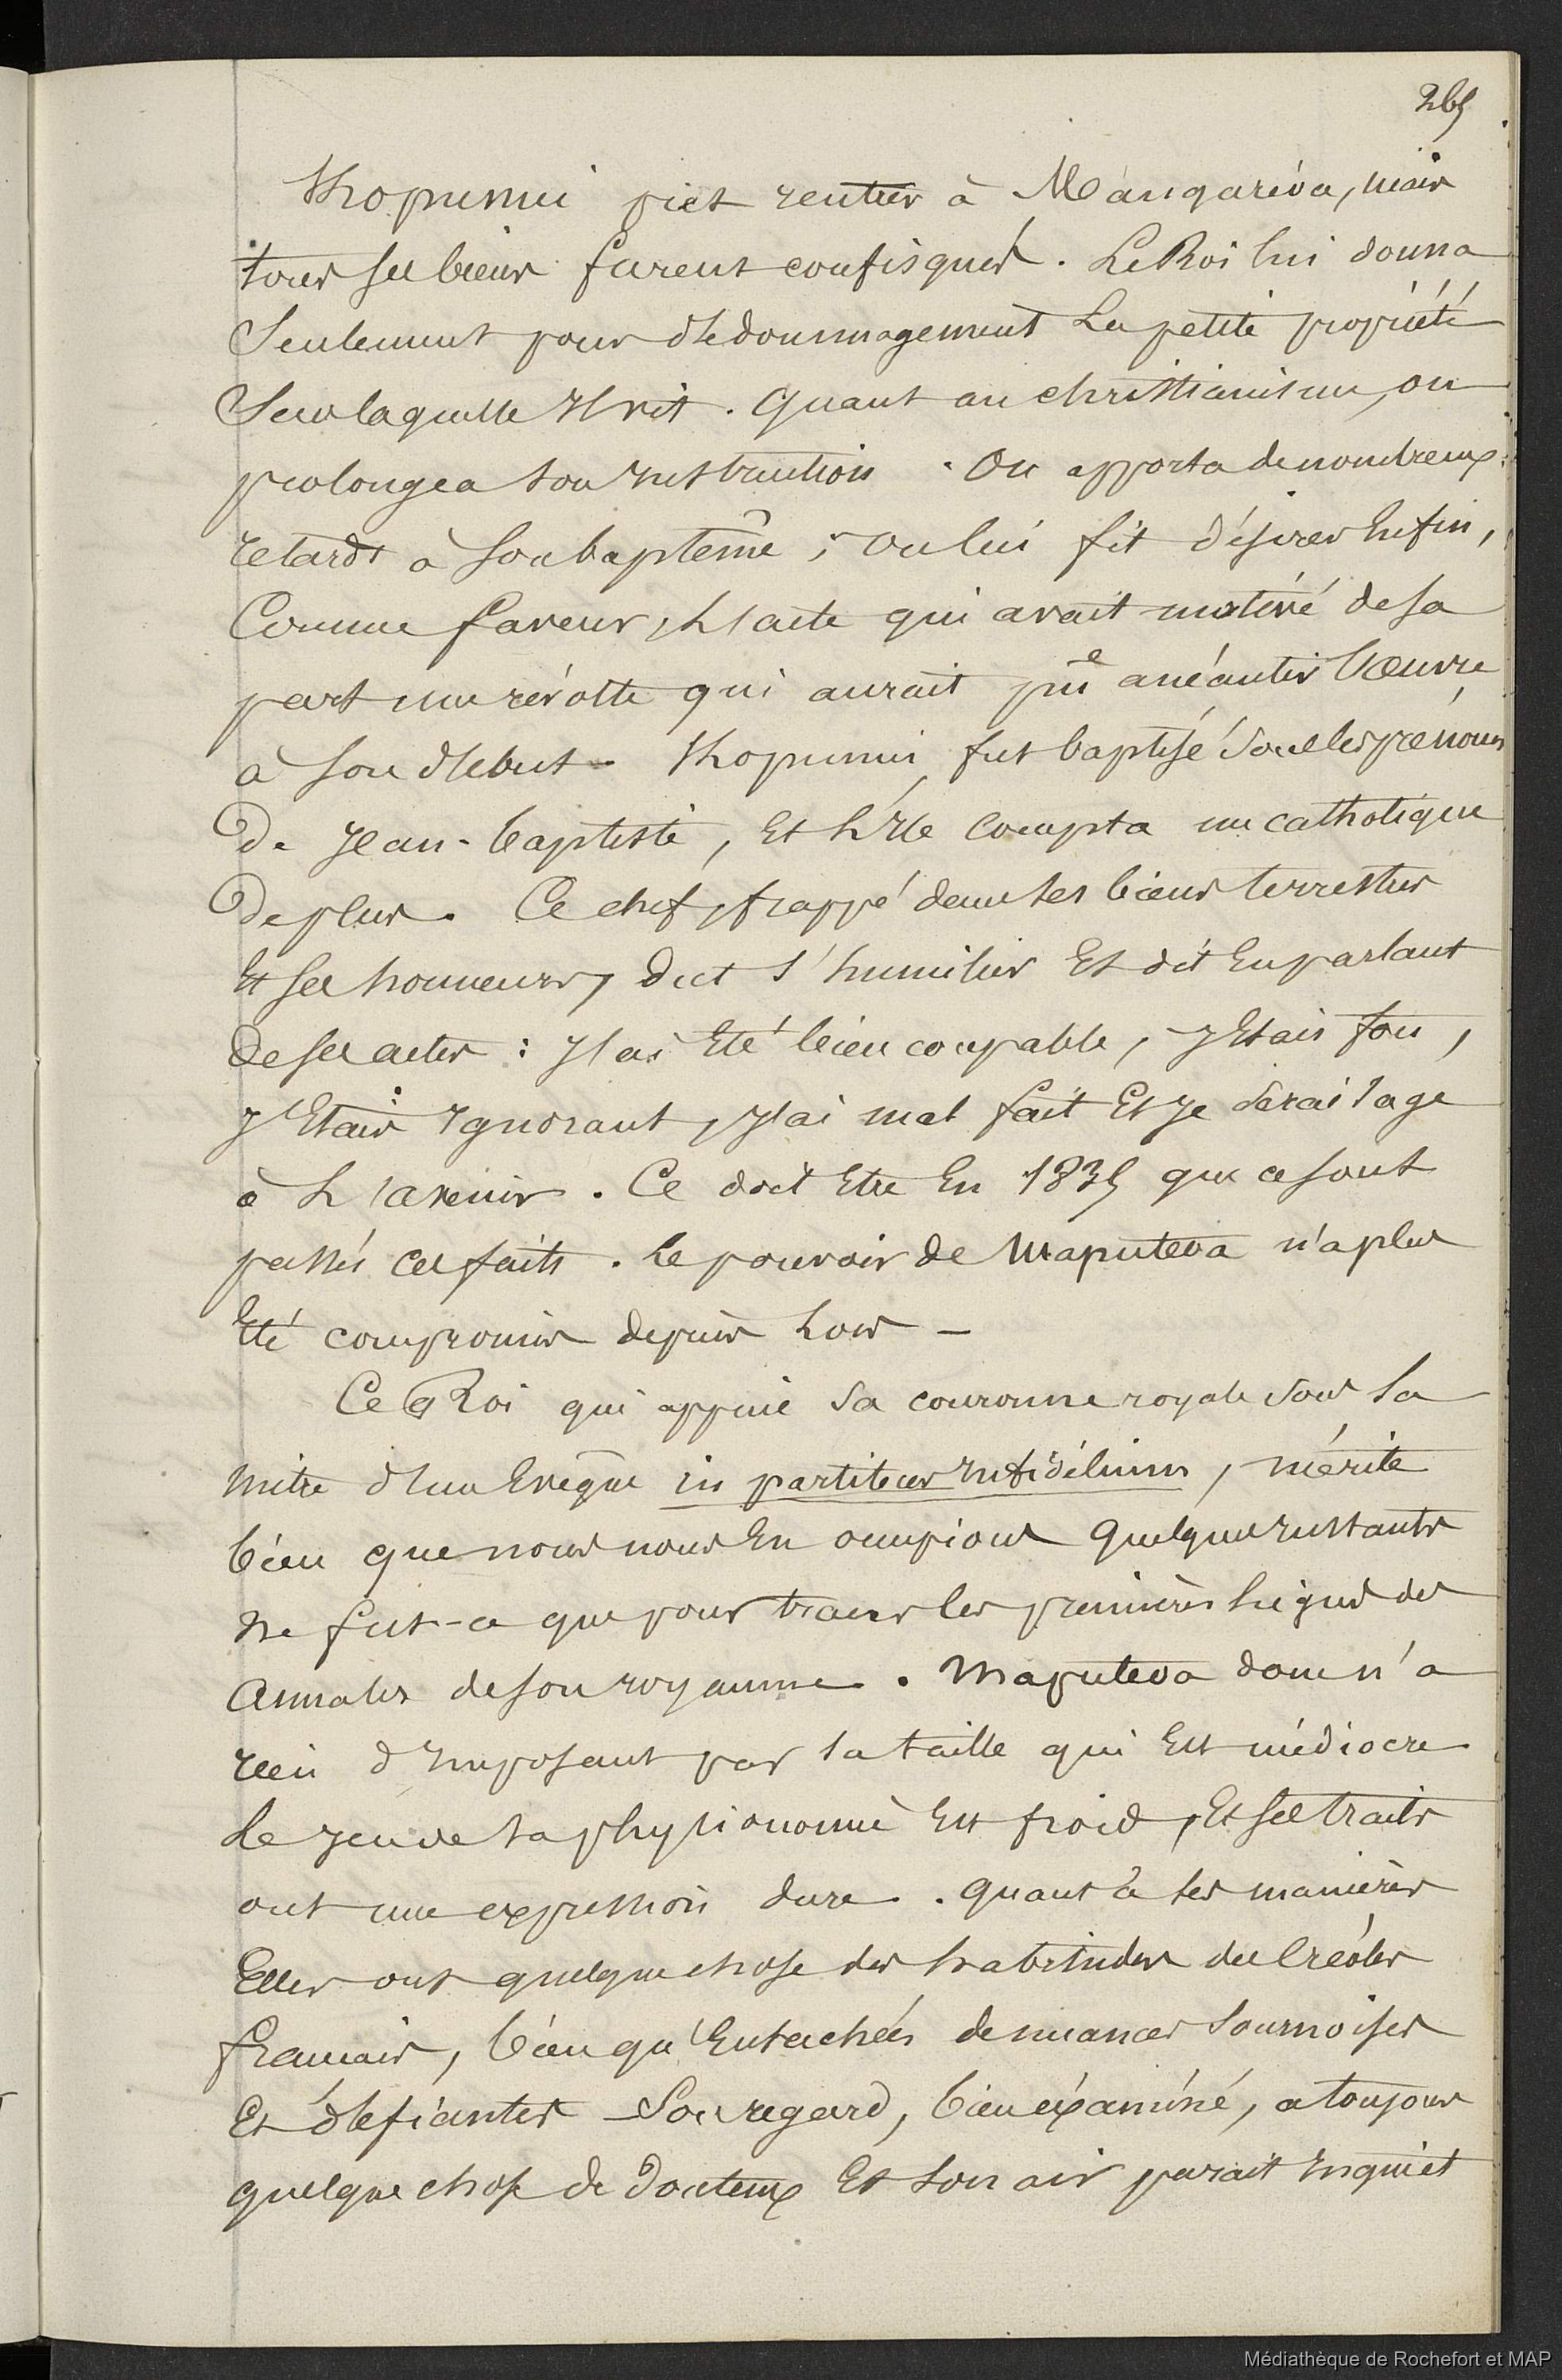 265
Thopunui put rentrer à Mangaréva, mais
tous ses biens furent confisqués. Le Roi lui donna
Seulement pour dédommagement La petite propriété
Sur laquelle Il vit. Quant au christianisme, on
prolongea son Instruction. On apporta de nombreux
retards à son baptême ; on lui fit désirer Enfin,
Comme faveur, L'acte qui avait motivé de sa
part une révolte qui aurait pu anéantir l'œuvre
à son début - Thopunui fut baptisé sous les prénoms
De Jean-baptiste, Et L'Ile compta un catholique
De plus. Ce chef, frappé dans ses biens terrestres
Et ses honneurs, dut s'humilier Et dit En parlant
De ses actes : J'ai Eté bien coupable, J'Etais fou,
J'Etais Ignorant, J'ai mal fait Et Je serai sage
à L'avenir. Ce doit Etre En 1835 que ce sont
passés ces faits. Le pouvoir de Maputeoa n'a plus
Eté compromis depuis Lors -
Ce Roi qui appuie sa couronne royale sous la
mitre d'un Evêque in partibus Infidélium, mérite
bien que nous nous En occupions Quelques Instants
Ne fut-ce que pour tracer les premières Lignes des
Annales de son royaume. Maputeoa donc n'a
rien d'Imposant par sa taille qui Est médiocre
Le Jeu de sa physionomie Est froid, Et ses traits
ont une expression dure. Quant à ses manières
Elles ont quelque chose des habitudes des Créoles
français, bien qu'Entachées de nuances sournoises
Et défiantes - Son regard, bien éxaminé, a toujours
quelque chose de Douteux Et son air parait Inquiet
Médiathèque de Rochefort et MAP